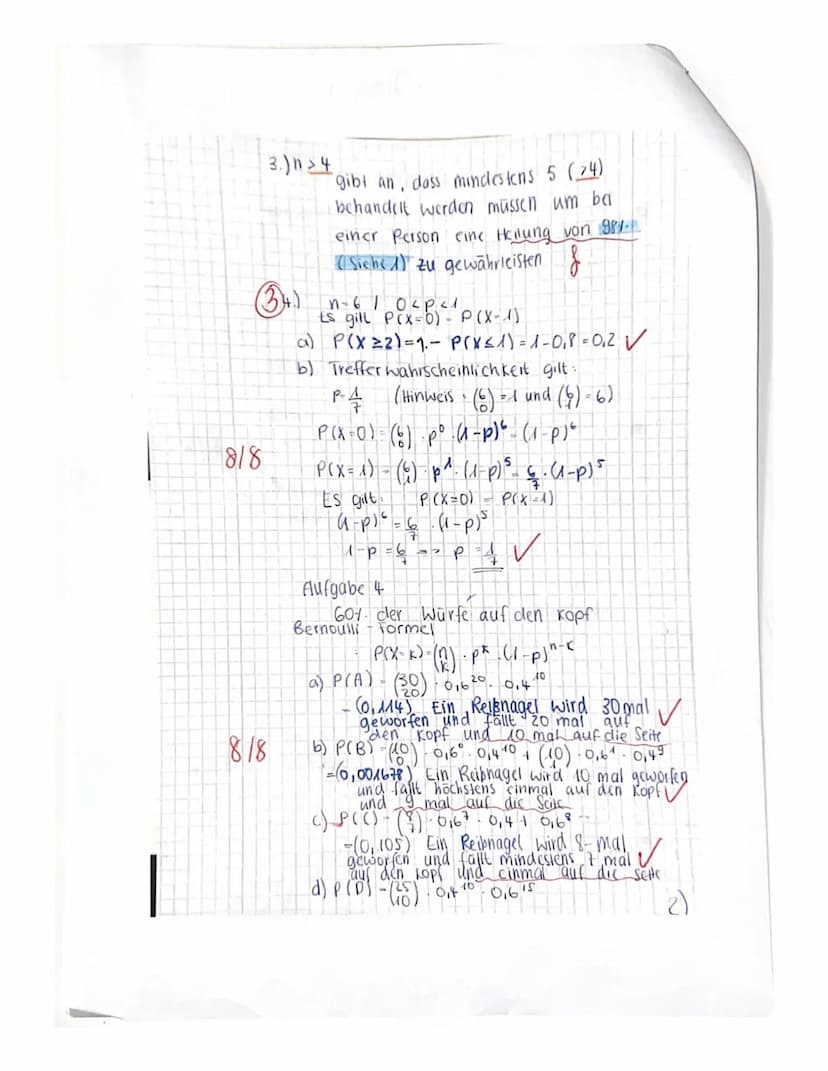 3.) n > 4
gibt an, dass mindestens 5 (>4)
behandelt werden müssen um bei
einer Person eine Heilung von 98%
(Siehe 1) zu gewährleisten f
③ 4.) n=6 / 0<p<1
Es gilt P(X=0) = P(X=1)
a) P(X≥2)=1.- P(X≤1) = 1-0,8 = 0,2 ✓
b) Trefferwahrscheinlichkeit gilt:
p=1/7 (Hinweis: (6 0) =1 und (6 1) = 6)
P(X=0) = (6 0) · p⁰ · (1-p)⁶ = (1-p)⁶
8/8
P(X=1) = (6 1) · p¹ · (1-p)⁵ = 6/7 · (1-p)⁵
Es gilt: P(X=0) = P(X=1)
(1-p)⁶ = 6/7 · (1-p)⁵
1-p = 6/7 => p = 1/7 ✓
Aufgabe 4
60% der Würfe auf den Kopf
Bernoulli-Formel
: P(X=k) = (n k) · pᵏ · (1-p)ⁿ⁻ᵏ
a) P(A) = (30 20) · 0,6²⁰ · 0,4¹⁰
= (0,114) Ein Reißnagel wird 30 mal ✓
geworfen und fällt 20 mal auf
den Kopf und 10 mal auf die Seite
8/8
b) P(B) = (10 0) · 0,6⁰ · 0,4¹⁰ + (10) · 0,6¹ · 0,4⁹
=(0,001678) Ein Reißnagel wird 10 mal geworfen
und fällt höchstens einmal auf den Kopf ✓
und 9 mal auf die Seite
c) P(C) = (8 7) · 0,6⁷ · 0,4 + 0,6⁸
=(0,105) Ein Reißnagel wird 8- mal
geworfen und fällt mindestens 7 mal ✓
auf den Kopf und einmal auf die Seite
d) P(D) = (25 10) · 0,4¹⁰ · 0,6¹⁵
2)